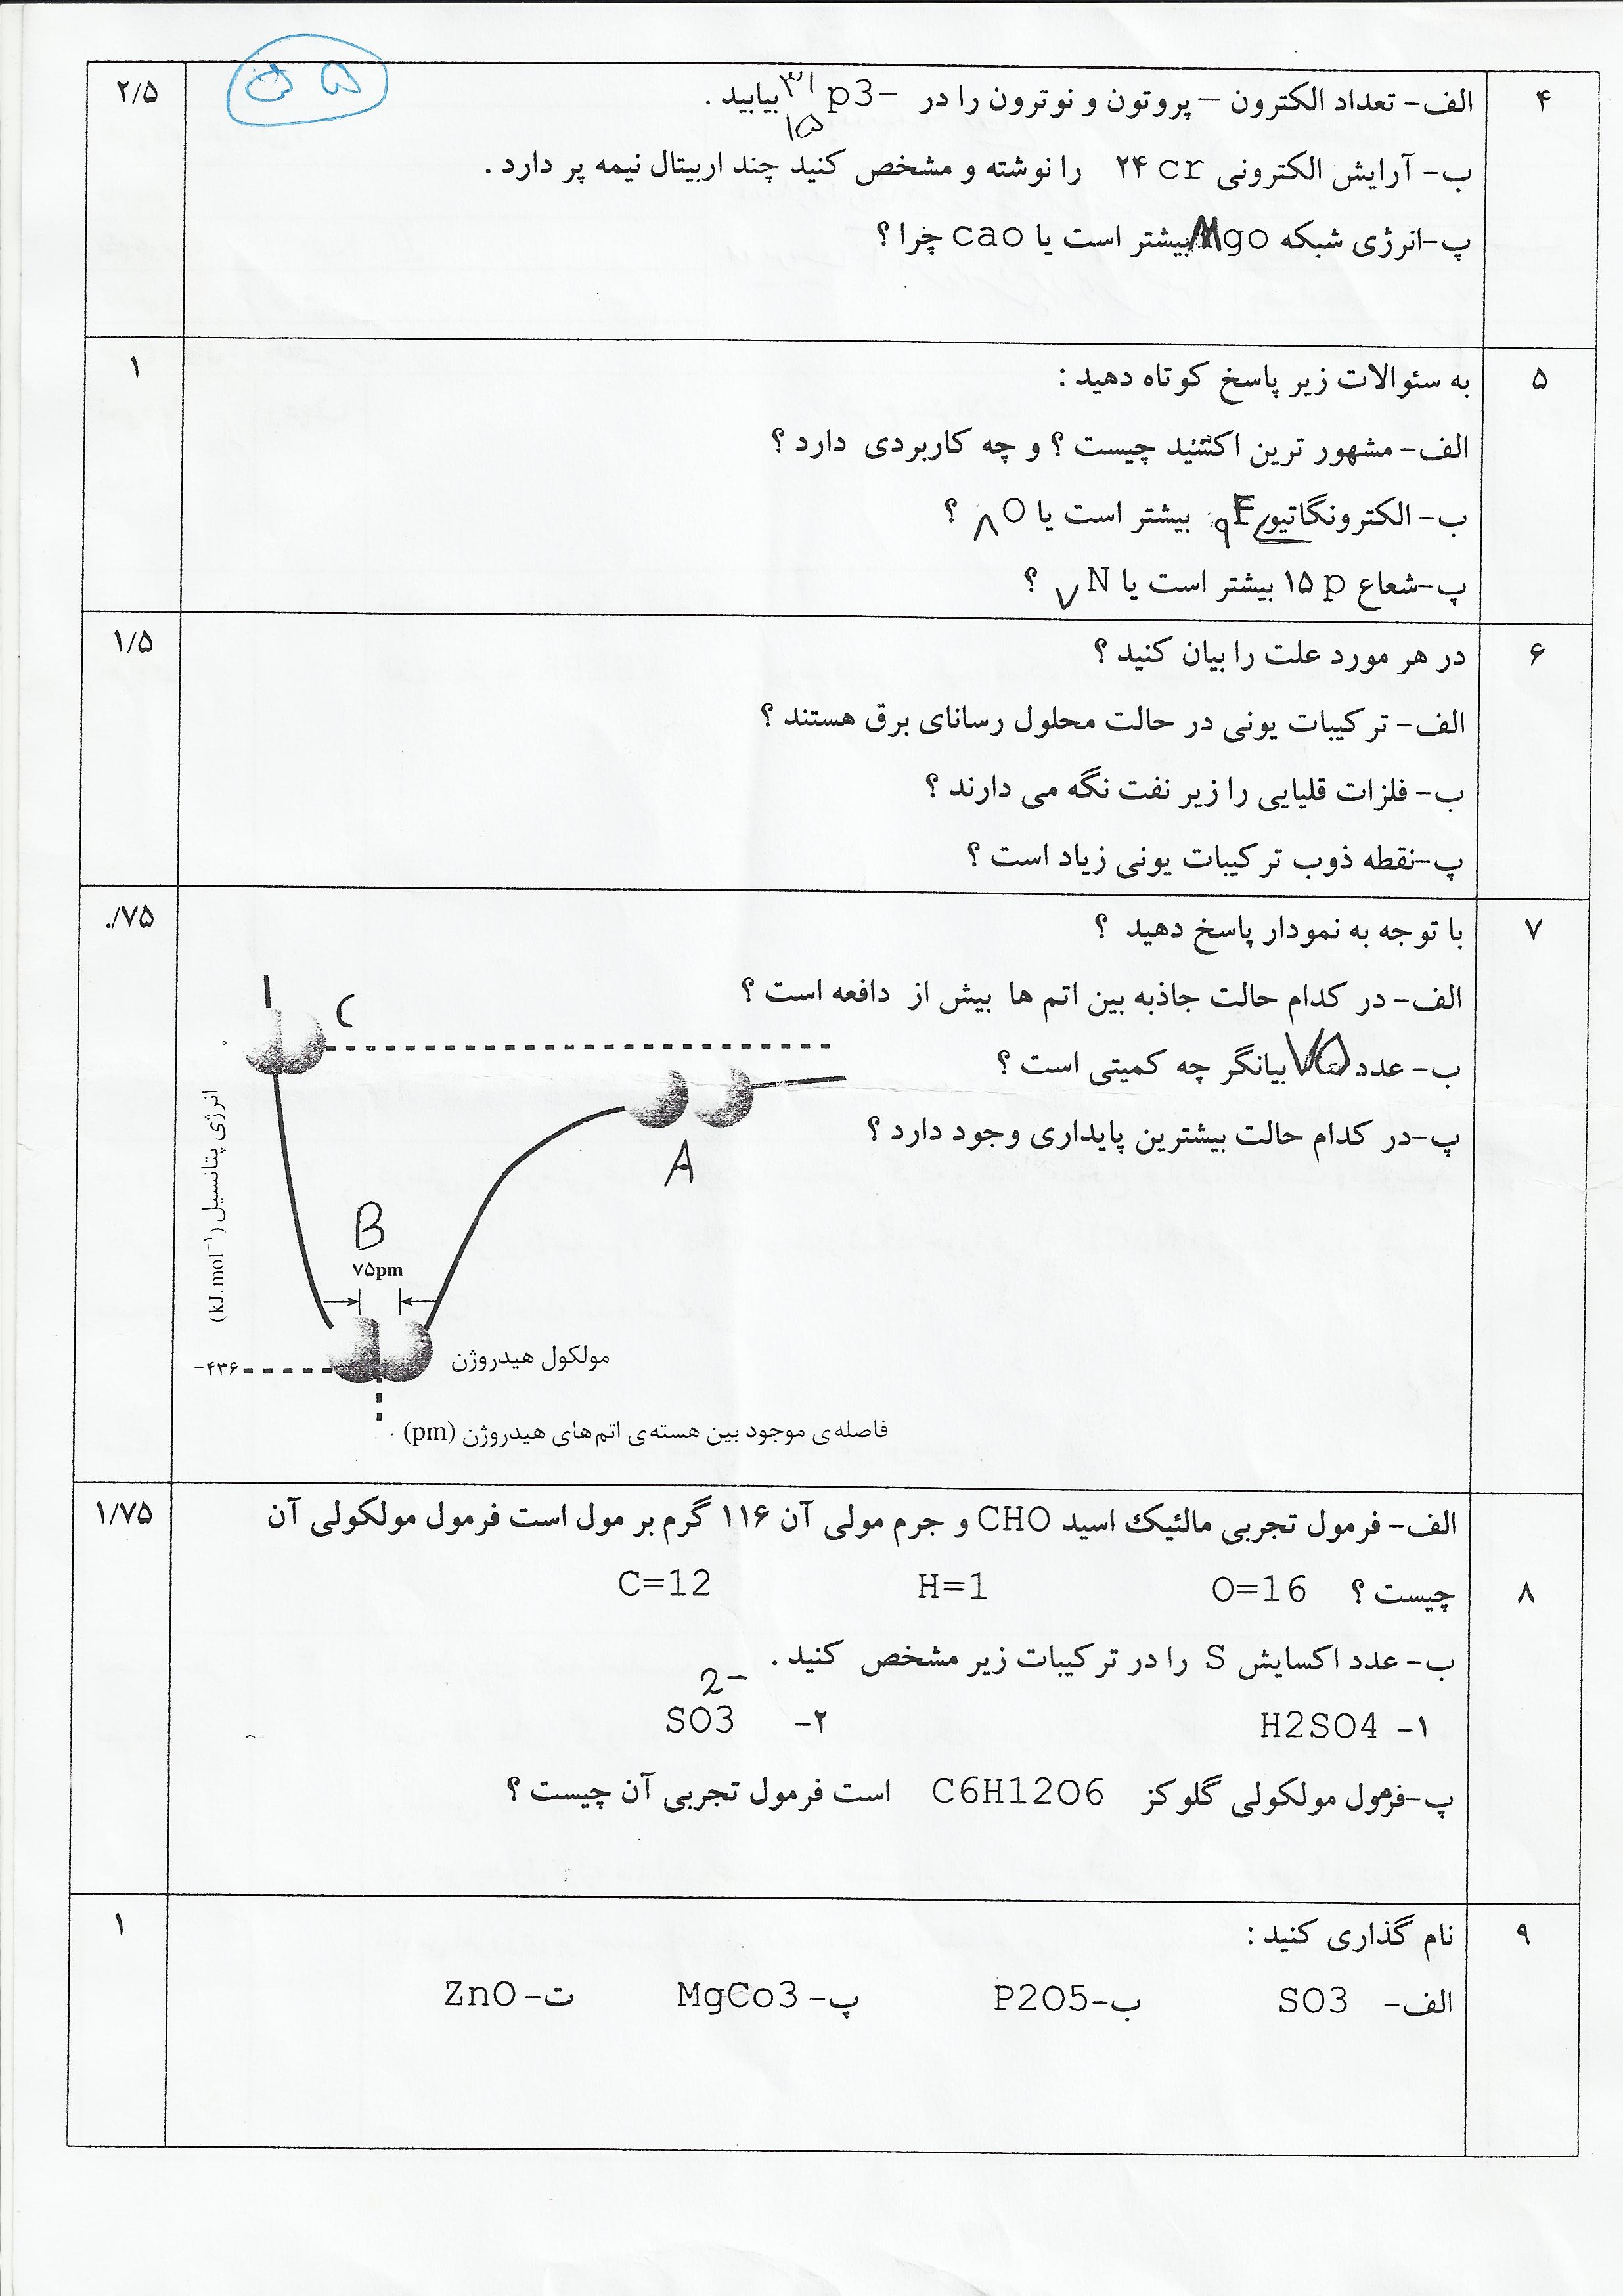 ۴ الف- تعداد الکترون – پروتون و نوترون را در p3- ۳۱ ۱۵ بیابید . ۲/۵
ب- آرایش الکترونی cr ۲۴ را نوشته و مشخص کنید چند اربیتال نیمه پر دارد .
پ-انرژی شبکه Mgo بیشتر است یا cao چرا ؟
۵ به سئوالات زیر پاسخ کوتاه دهید : ۱
الف- مشهور ترین اکتنید چیست ؟ و چه کاربردی دارد ؟
ب- الکترونگاتیوی F ۹ بیشتر است یا O ۸ ؟
پ-شعاع p ۱۵ بیشتر است یا N ۷ ؟
۶ در هر مورد علت را بیان کنید ؟ ۱/۵
الف- ترکیبات یونی در حالت محلول رسانای برق هستند ؟
ب- فلزات قلیایی را زیر نفت نگه می دارند ؟
پ-نقطه ذوب ترکیبات یونی زیاد است ؟
۷ با توجه به نمودار پاسخ دهید ؟ ۰/۷۵
الف- در کدام حالت جاذبه بین اتم ها بیش از دافعه است ؟
ب- عدد ۷۵ بیانگر چه کمیتی است ؟
پ-در کدام حالت بیشترین پایداری وجود دارد ؟
C
A
B
۷۵pm
انرژی پتانسیل (kJ.mol⁻¹)
مولکول هیدروژن
-۴۳۶
فاصله‌ی موجود بین هسته‌ی اتم‌های هیدروژن (pm)
الف- فرمول تجربی مالئیک اسید CHO و جرم مولی آن ۱۱۶ گرم بر مول است فرمول مولکولی آن ۱/۷۵
۸ چیست ؟ O=16 H=1 C=12
ب- عدد اکسایش S را در ترکیبات زیر مشخص کنید .
۱- H2SO4 ۲- SO3 2-
پ-فرمول مولکولی گلوکز C6H12O6 است فرمول تجربی آن چیست ؟
۹ نام گذاری کنید : ۱
الف- SO3 ب-P2O5 پ-MgCo3 ت-ZnO